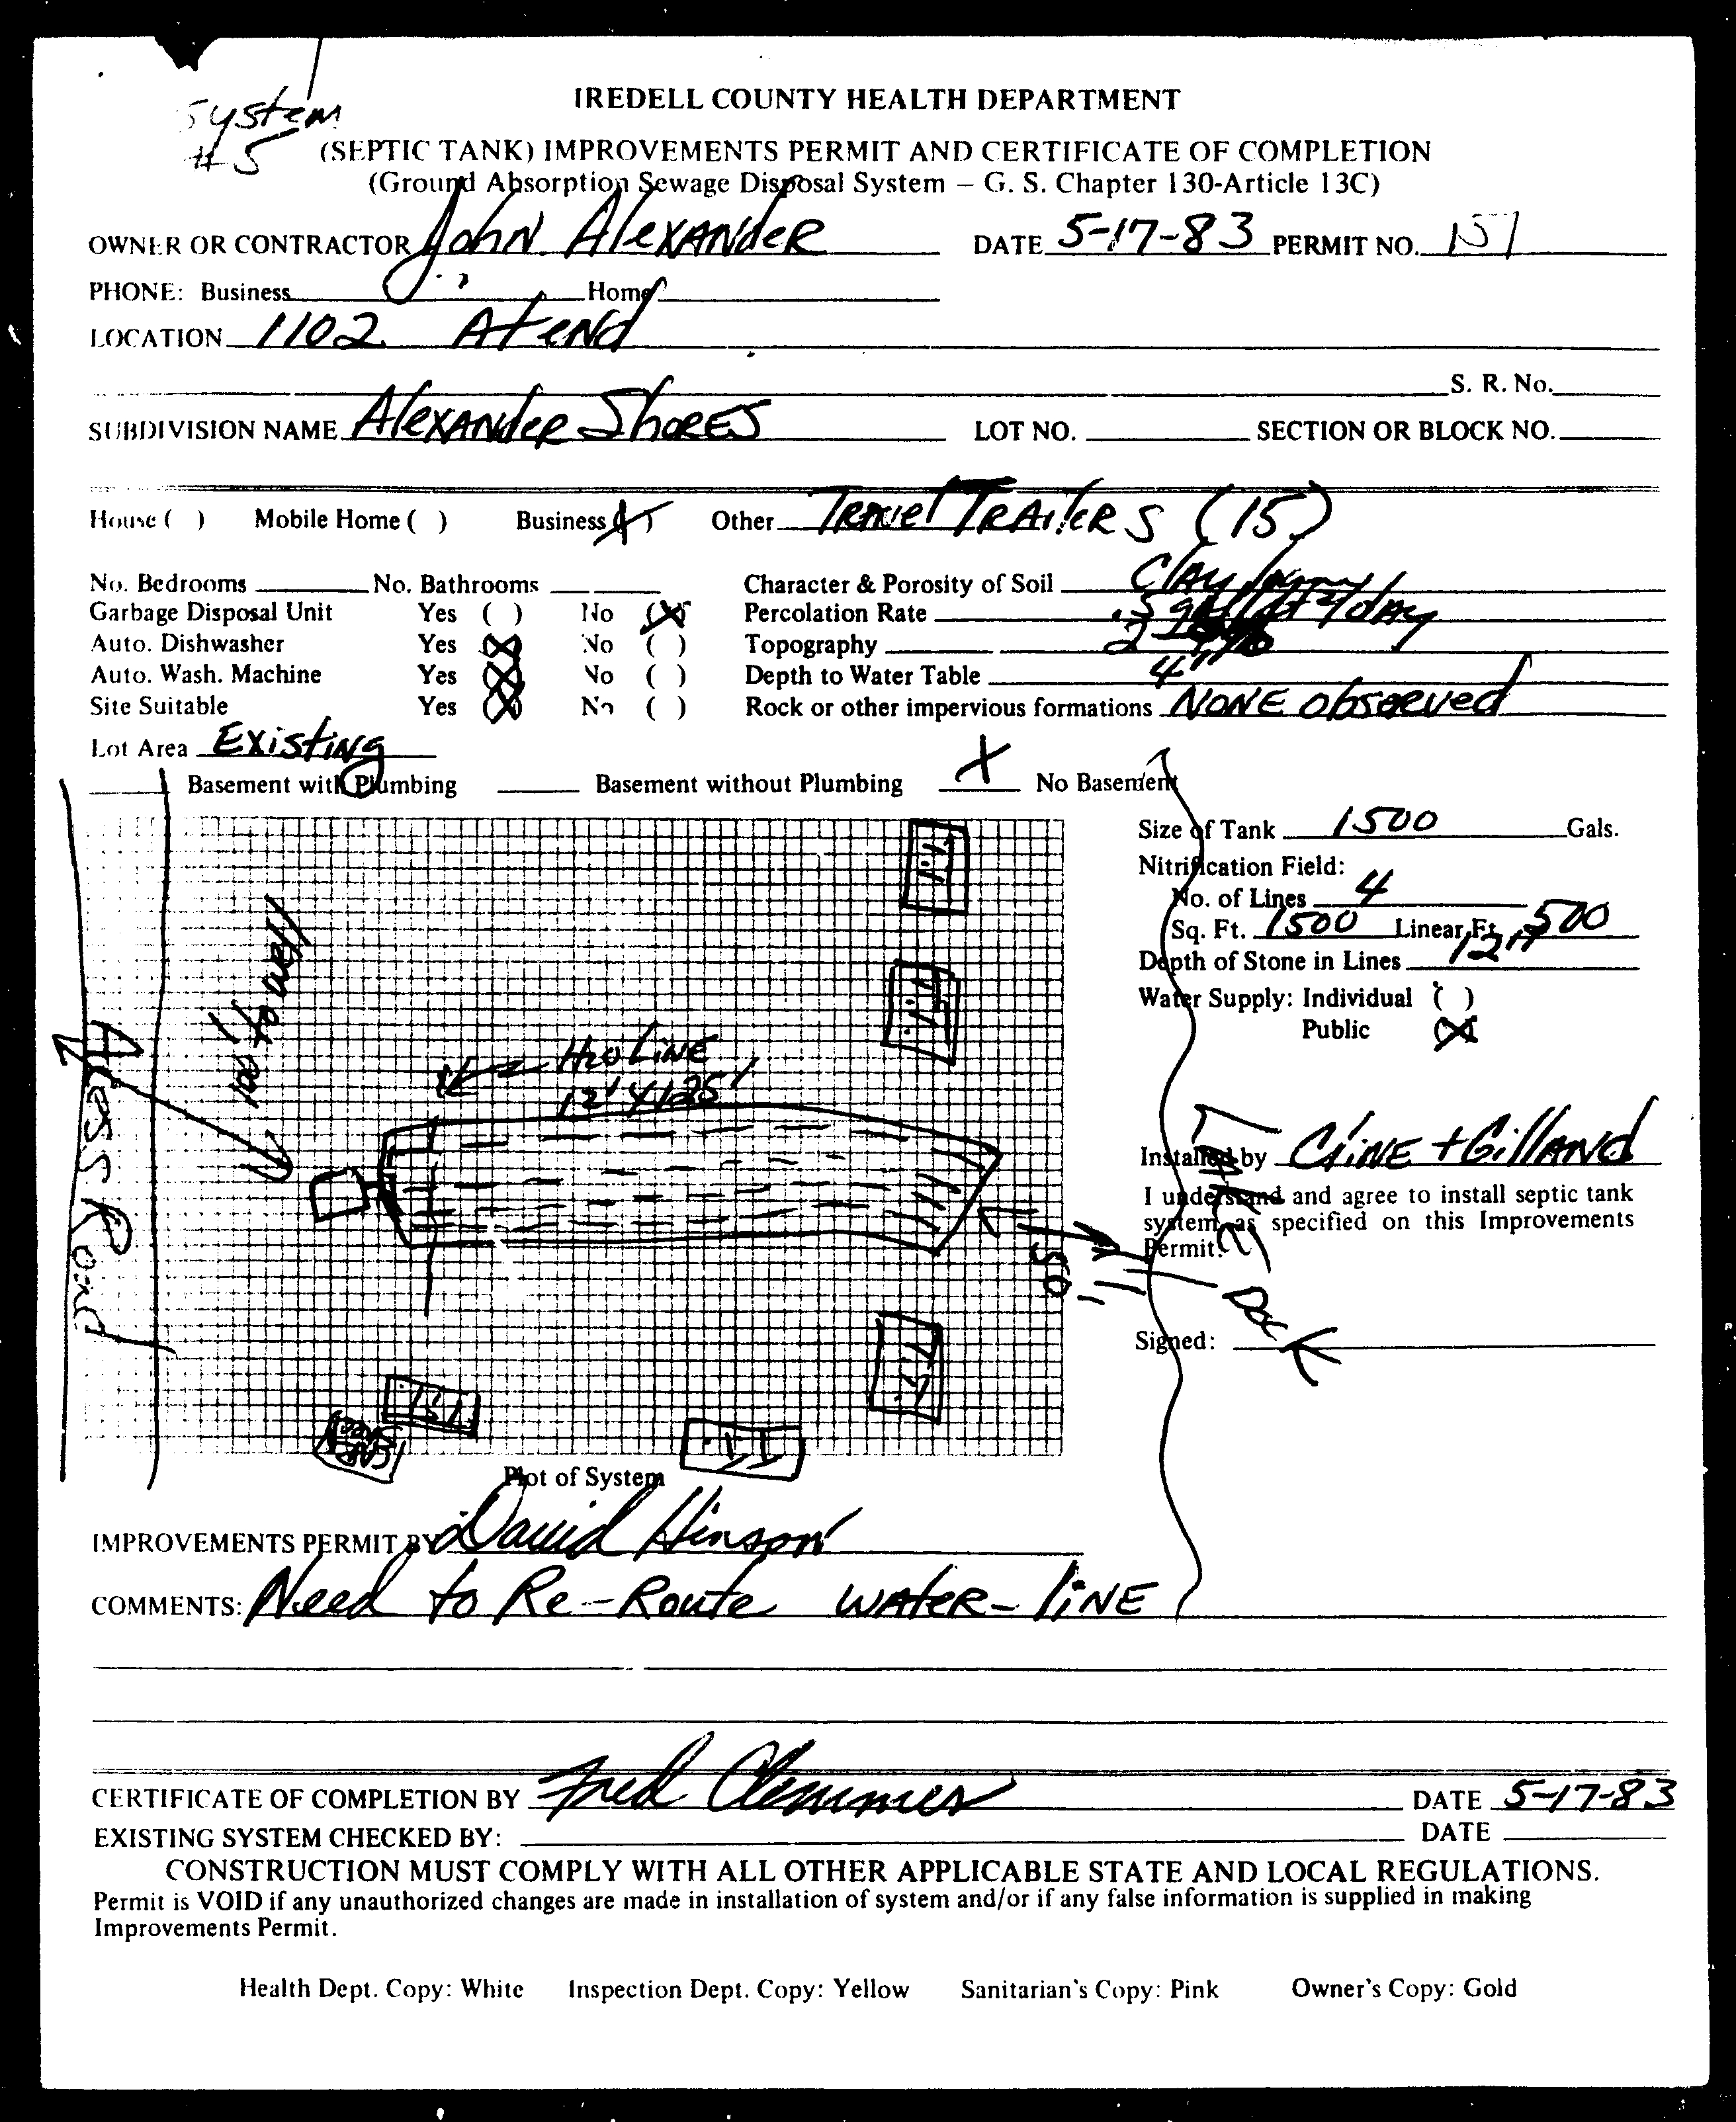 System
#5
IREDELL COUNTY HEALTH DEPARTMENT
(SEPTIC TANK) IMPROVEMENTS PERMIT AND CERTIFICATE OF COMPLETION
(Ground Absorption Sewage Disposal System – G. S. Chapter 130-Article 13C)
OWNER OR CONTRACTOR John Alexander DATE 5-17-83 PERMIT NO. 151
PHONE: Business Home
LOCATION 1102 At end
S. R. No.
SUBDIVISION NAME Alexander Shores LOT NO. SECTION OR BLOCK NO.
House ( ) Mobile Home ( ) Business (X) Other Travel Trailers (15)
No. Bedrooms No. Bathrooms Character & Porosity of Soil Clay loamy
Garbage Disposal Unit Yes ( ) No (X) Percolation Rate .5 gal/ft2/day
Auto. Dishwasher Yes (X) No ( ) Topography 2
Auto. Wash. Machine Yes (X) No ( ) Depth to Water Table 4'
Site Suitable Yes (X) No ( ) Rock or other impervious formations NONE observed
Lot Area Existing
Basement with Plumbing Basement without Plumbing X No Basement
Size of Tank 1500 Gals.
Nitrification Field:
No. of Lines 4
Sq. Ft. 1500 Linear Ft. 500
Depth of Stone in Lines 12"
Water Supply: Individual ( )
Public (X)
100' to well
H2O LINE
12' X 125'
Acess Road
T.T.
T.T.
50
T.T.
T.T.
T.T.
Installed by Cline + Gilland
I understand and agree to install septic tank
system as specified on this Improvements
Permit.
Signed:
Plot of System
IMPROVEMENTS PERMIT BY David Hinson
COMMENTS: Need to Re-Route water-line
CERTIFICATE OF COMPLETION BY Fred Clemmer DATE 5-17-83
EXISTING SYSTEM CHECKED BY: DATE
CONSTRUCTION MUST COMPLY WITH ALL OTHER APPLICABLE STATE AND LOCAL REGULATIONS.
Permit is VOID if any unauthorized changes are made in installation of system and/or if any false information is supplied in making
Improvements Permit.
Health Dept. Copy: White Inspection Dept. Copy: Yellow Sanitarian's Copy: Pink Owner's Copy: Gold